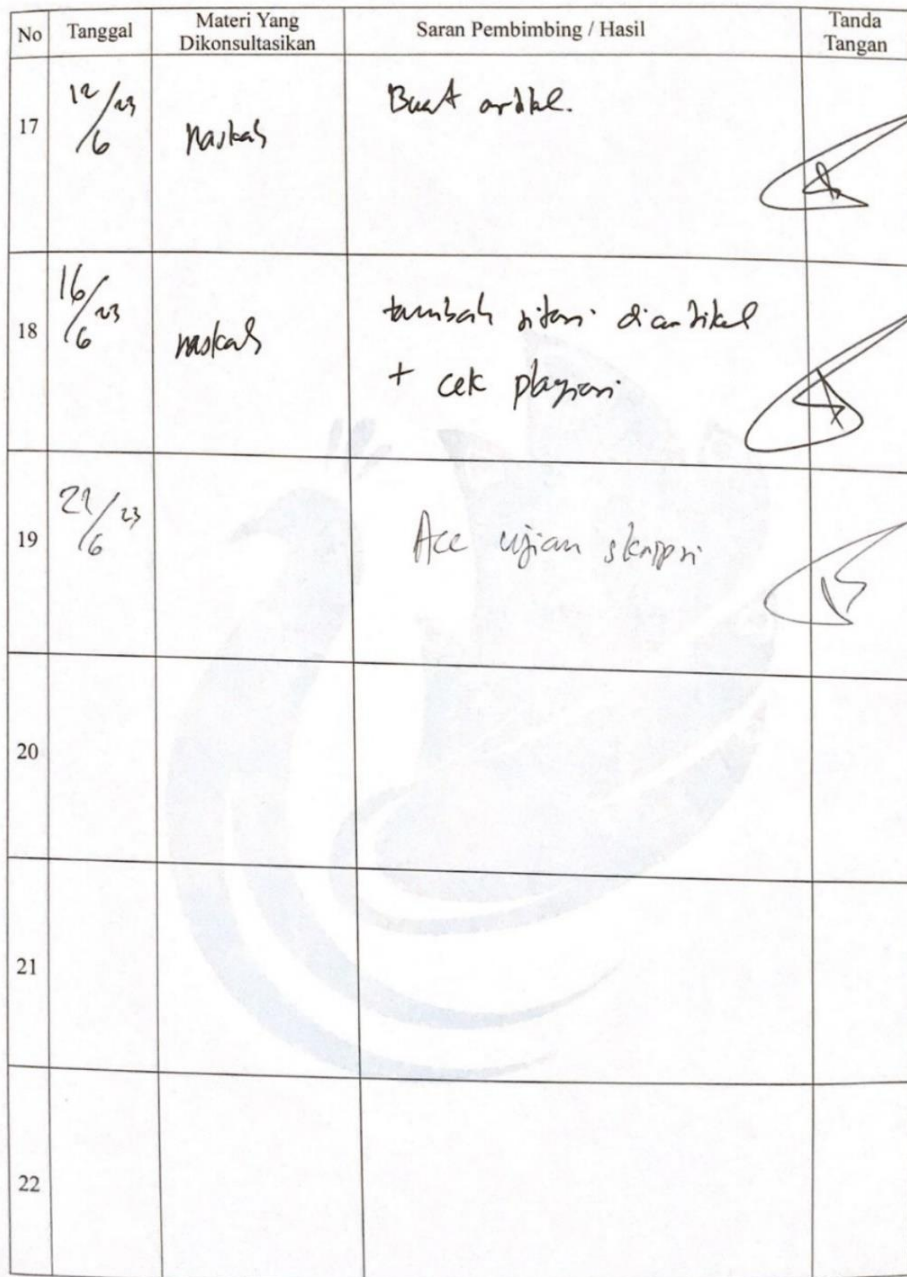 No Tanggal Materi Yang Dikonsultasikan Saran Pembimbing / Hasil Tanda Tangan
17 12/6 23 naskah Buat artikel.
18 16/6 23 naskah tambah sitasi di artikel
+ cek plagiasi
19 21/6 23 Acc ujian skripsi
20
21
22